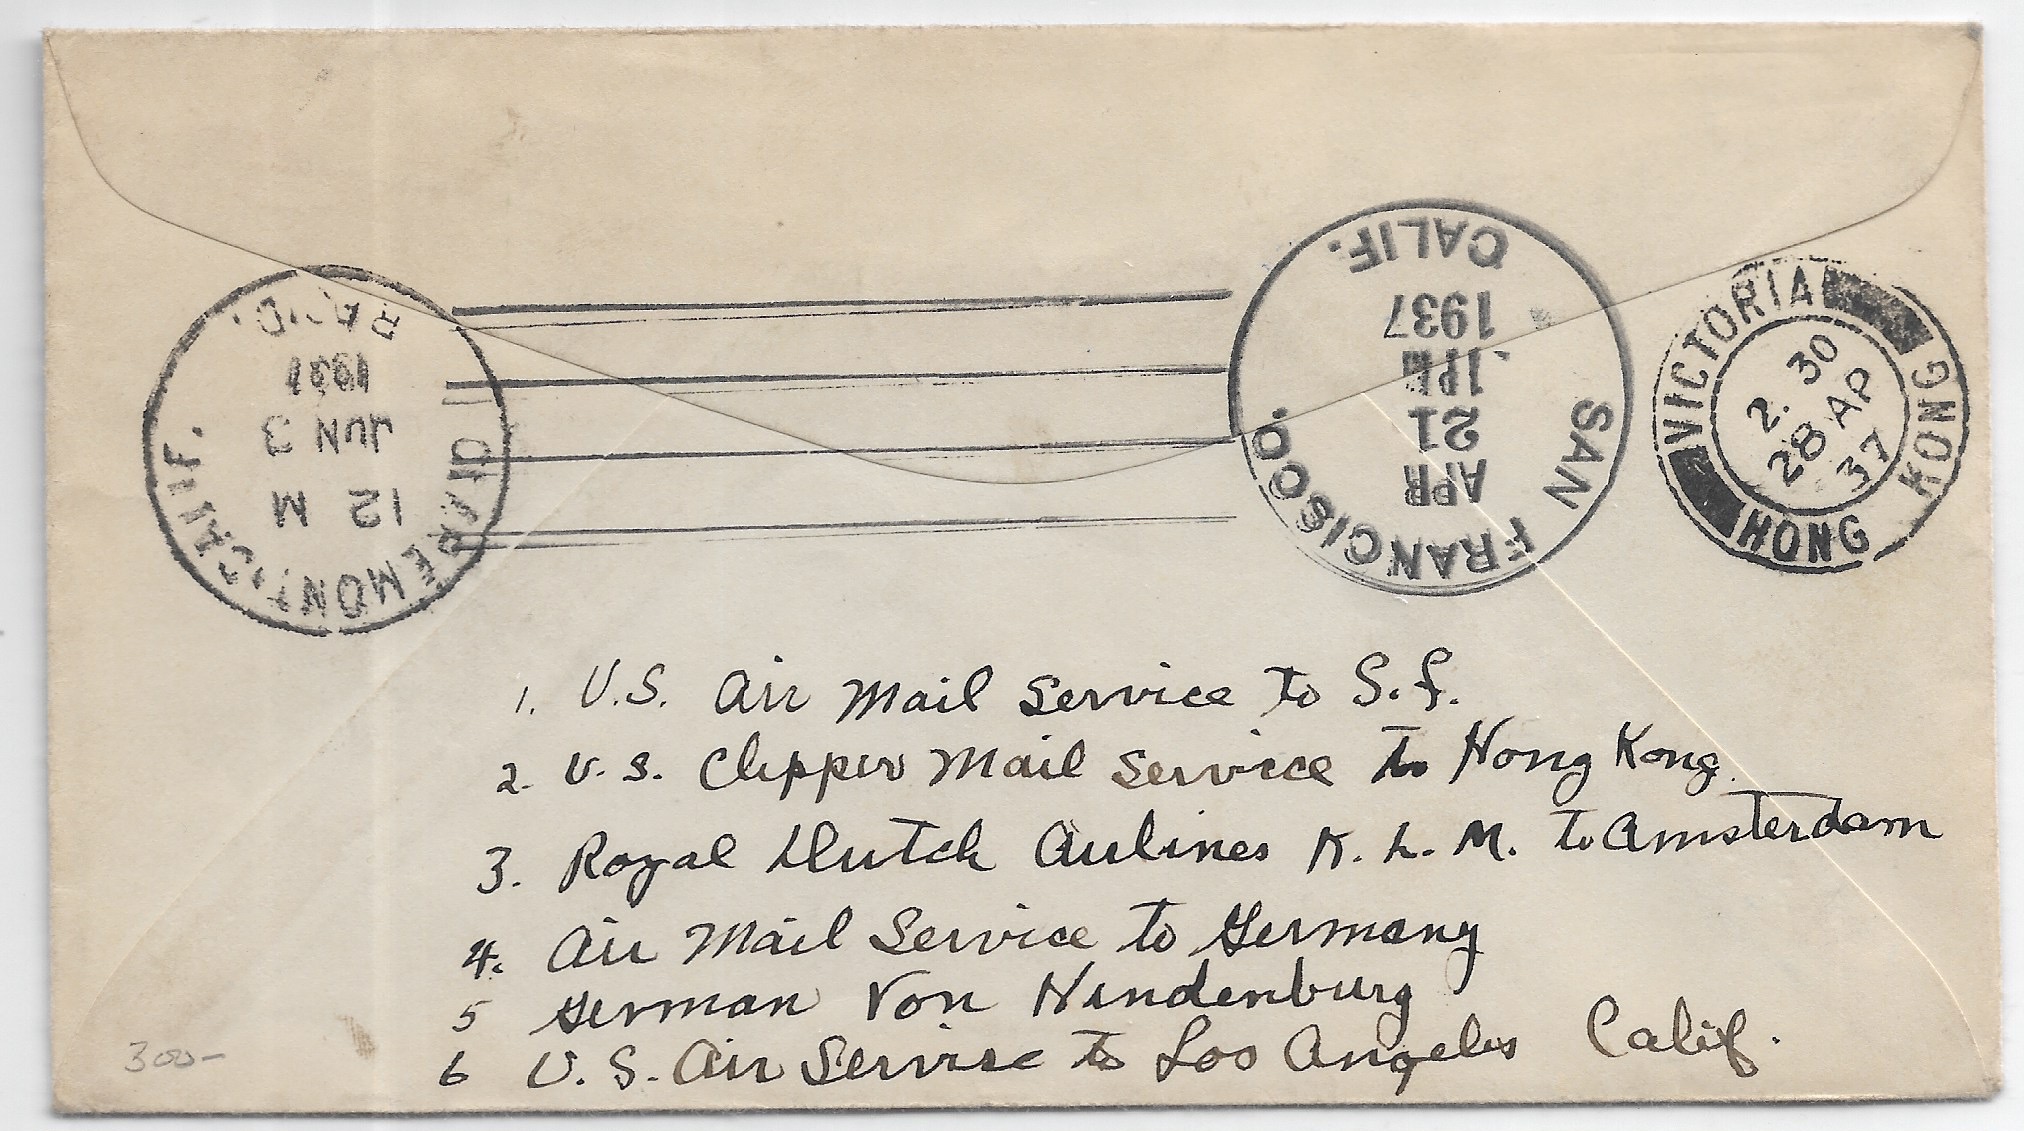 CLAREMONT, CALIF.
12 M
JUN 3
1937
REC'D.
SAN FRANCISCO.
APR
21
1PM
1937
CALIF.
VICTORIA
2. 30
28 AP
37
HONG KONG
1. U.S. Air Mail Service to S.F.
2. U.S. Clipper Mail Service to Hong Kong.
3. Royal Dutch Airlines K.L.M. to Amsterdam
4. Air Mail Service to Germany
5 German Von Hindenburg
6 U.S. Air Service to Los Angeles Calif.
300-